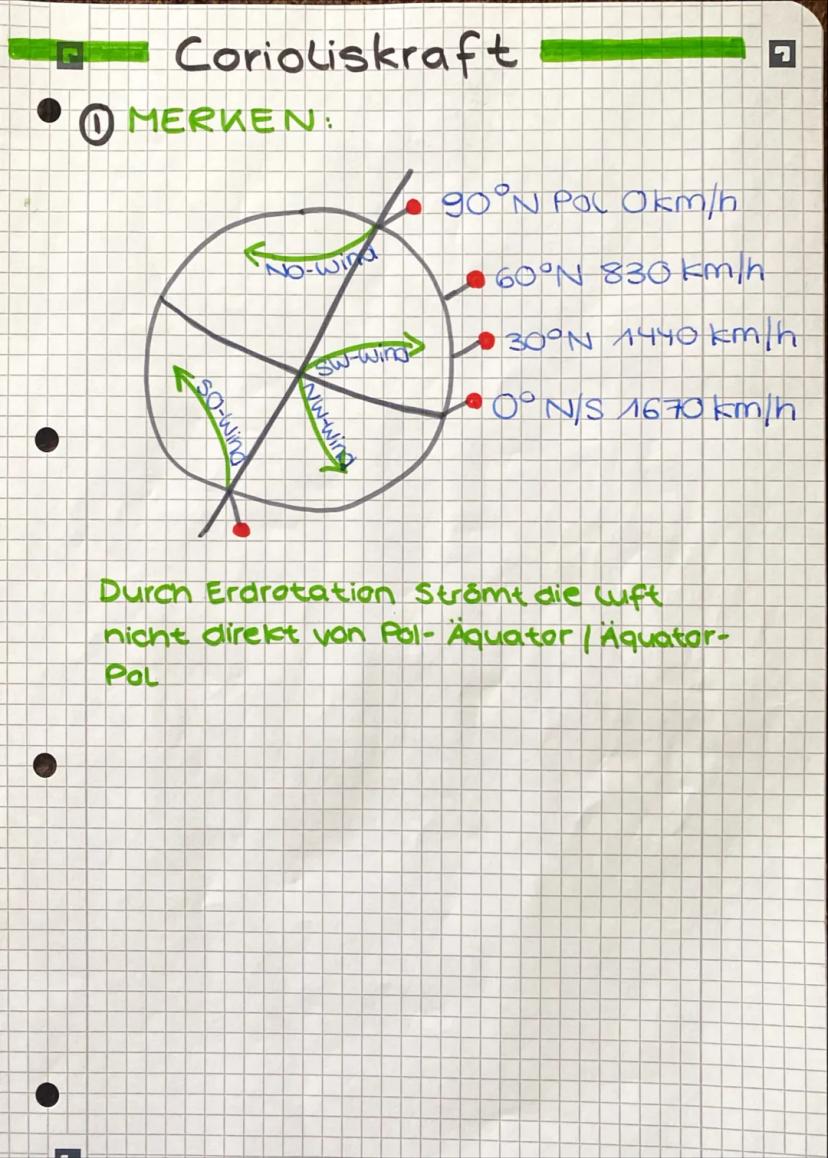 Corioliskraft
① MERKEN:
90°N Pol 0km/h
NO-Wind
60°N 830 km/h
30°N 1440 km/h
SW-Wind
0° N/S 1670 km/h
SO-Wind
NW-Wind
Durch Erdrotation Strömt die Luft
nicht direkt von Pol- Äquator / Äquator-
Pol